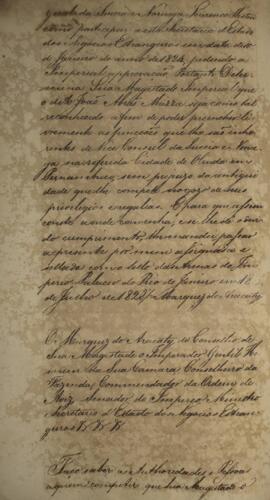 geral da Suecia e Noruega Lourenço Westin
como participou a esta Secretaria d'Estado
dos Negocios Estrangeiros em data de
de Janeiro do anno de 1824, pedindo a
Imperial approvação Portanto
Sua Magestade Imperial que
o d. João Abrás seja como tal
reconhecido a fim de poder preencher li-
vremente as funcções que lhe são inhe-
rentes de Vice Consul da Suecia e Norue-
ga na referida Cidade de Olinda em
Pernambuco, sem prejuizo da antigui-
dade que lhe compete no gozo de seus
privilegios e regalias. E para que assim
conste aonde convenha, e se lhe dê o devi-
do cumprimento, lhe mandei passar
a presente por mim assignada e
sellada com o sello das Armas do Im-
perio. Palacio do Rio de Janeiro em 18
de Julho de 1828. Marquez de Aracaty

O Marquez de Aracaty, do Conselho de
Sua Magestade o Imperador, Gentil Ho-
mem da Sua Camara, Conselheiro da
Fazenda, Commendador da Ordem de
Aviz, Senador do Imperio, Ministro e
Secretario d'Estado dos Negocios Estran-
geiros

Faço saber as Authoridades, e Pessoas
a quem competir que Sua Magestade o